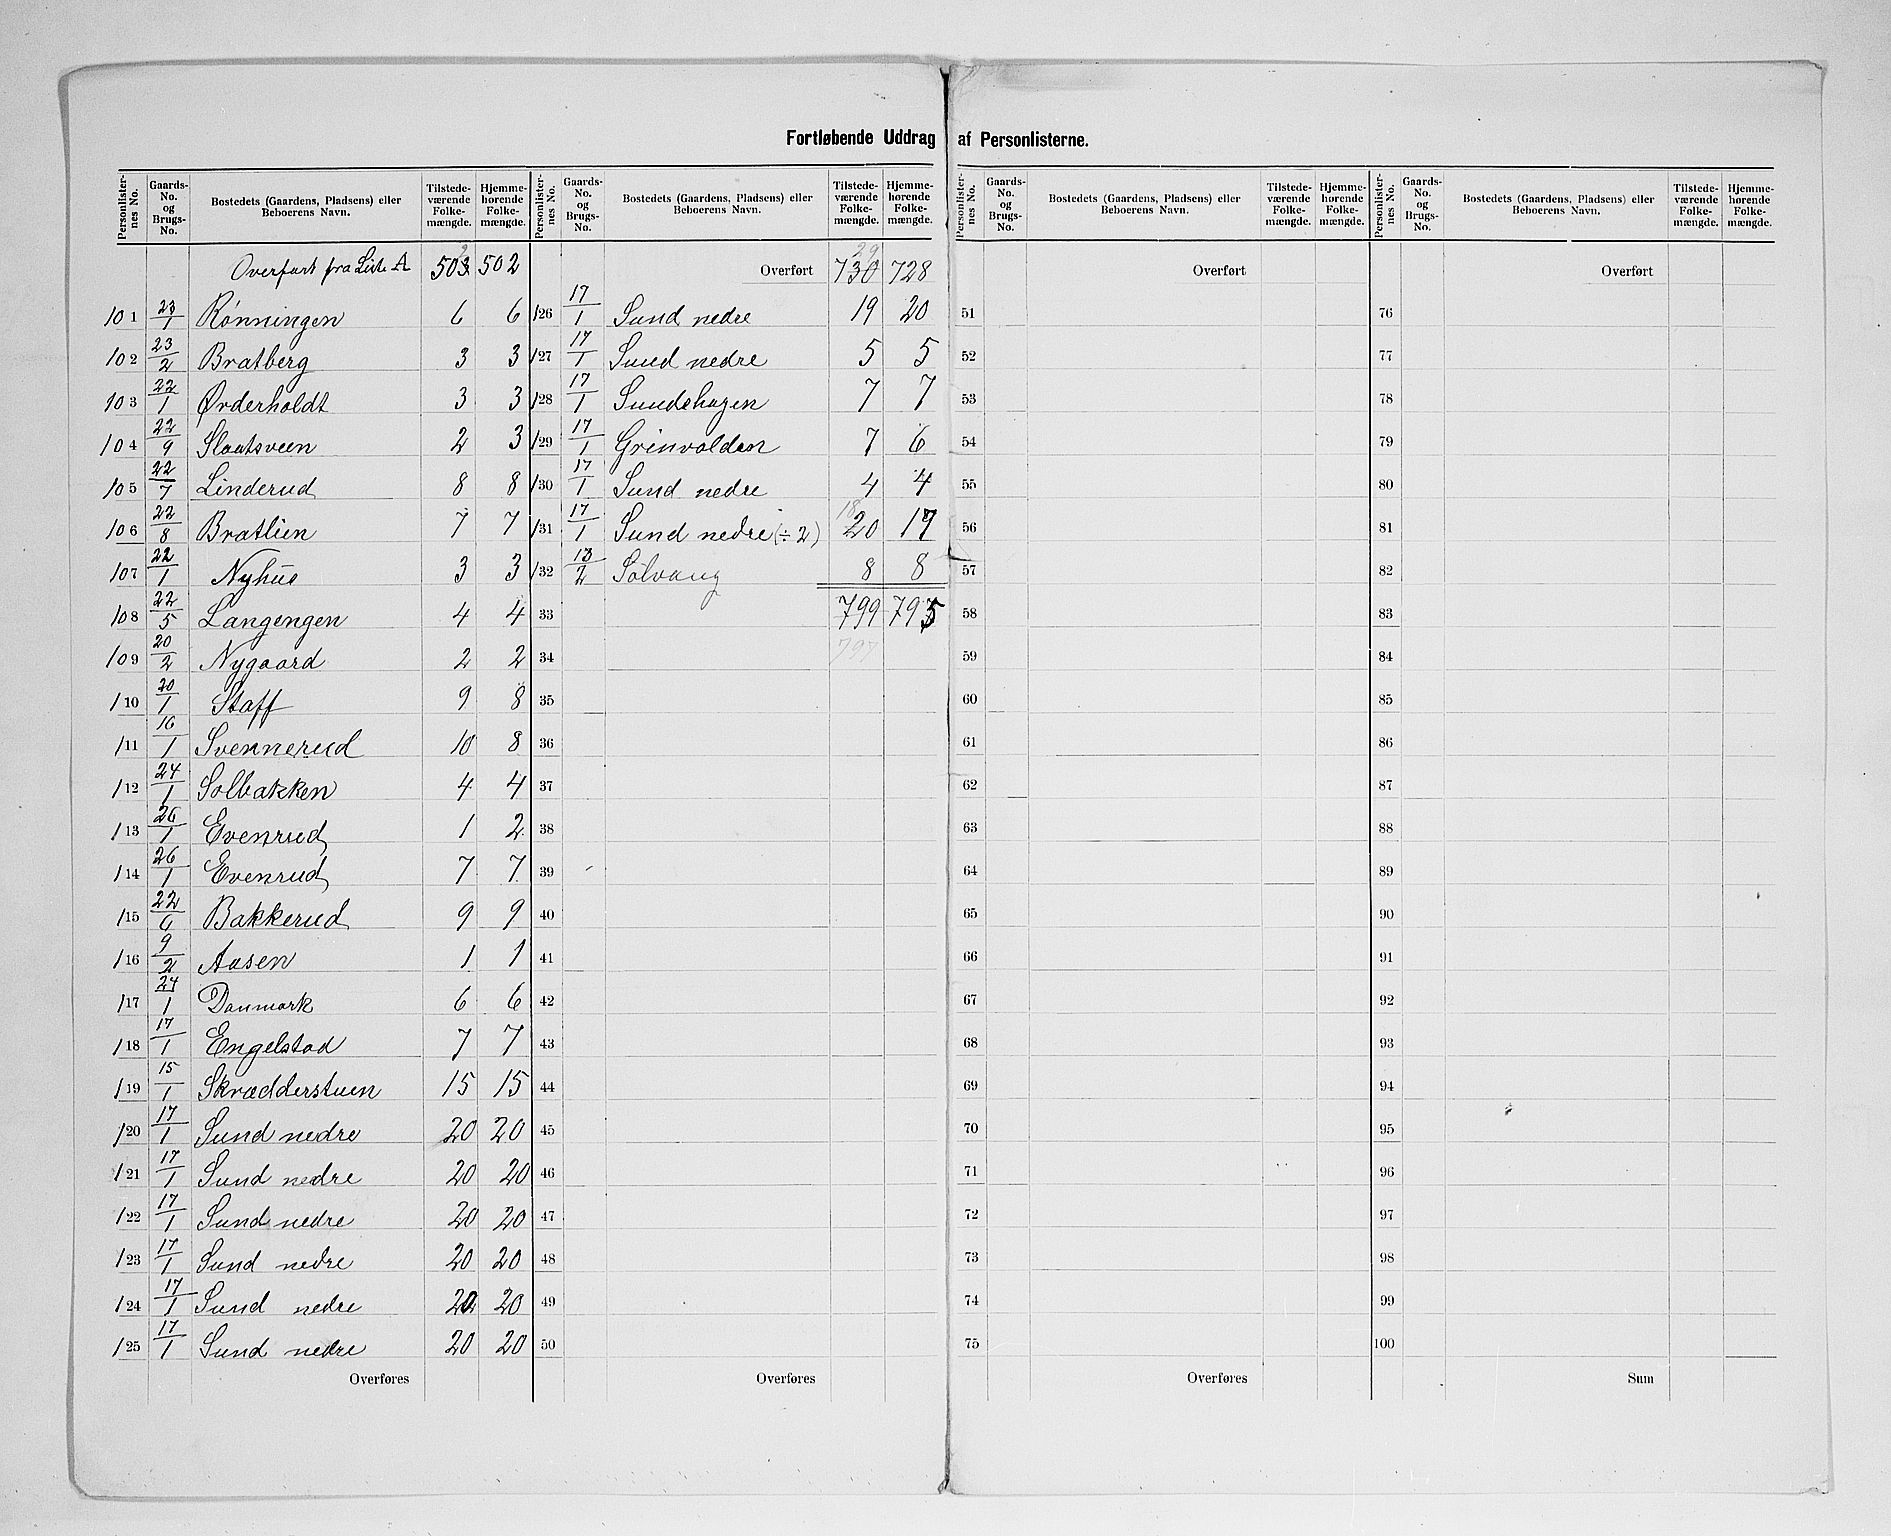 Fortløbende Uddrag af Personlisterne.
Personlisternes No. Gaards-No. og Brugs-No. Bostedets (Gaardens, Pladsens) eller Beboerens Navn. Tilstedeværende Folkemængde. Hjemmehørende Folkemængde.
Overført fra Liste A 503 502
101 23/1 Rønningen 6 6
102 23/2 Bratberg 3 3
103 22/1 Ørderholdt 3 3
104 22/9 Slaatsveen 2 3
105 22/7 Linderud 8 8
106 22/8 Bratlien 7 7
107 22/1 Nyhus 3 3
108 22/5 Langengen 4 4
109 20/2 Nygaard 2 2
110 20/1 Staff 9 8
111 10/1 Svennerud 10 8
112 24/1 Solbakken 4 4
113 26/1 Evenrud 1 2
114 26/1 Evenrud 7 7
115 22/6 Bakkerud 9 9
116 9/2 Aasen 1 1
117 24/1 Danmark 6 6
118 17/1 Engelstad 7 7
119 15/1 Skrædderstuen 15 15
120 17/1 Sund nedre 20 20
121 17/1 Sund nedre 20 20
122 17/1 Sund nedre 20 20
123 17/1 Sund nedre 20 20
124 17/1 Sund nedre 20 20
125 17/1 Sund nedre 20 20
Overføres
Personlisternes No. Gaards-No. og Brugs-No. Bostedets (Gaardens, Pladsens) eller Beboerens Navn. Tilstedeværende Folkemængde. Hjemmehørende Folkemængde.
29
Overført 730 728
126 17/1 Sund nedre 19 20
127 17/1 Sund nedre 5 5
128 17/1 Sundshagen 7 7
129 17/1 Grinvolden 7 6
130 17/1 Sund nedre 4 4
18
131 17/1 Sund nedre (÷2) 20 17
132 13/2 Solvang 8 8
33 799 795
34 797
35
36
37
38
39
40
41
42
43
44
45
46
47
48
49
50
Overføres
Personlisternes No. Gaards-No. og Brugs-No. Bostedets (Gaardens, Pladsens) eller Beboerens Navn. Tilstedeværende Folkemængde. Hjemmehørende Folkemængde.
Overført
51
52
53
54
55
56
57
58
59
60
61
62
63
64
65
66
67
68
69
70
71
72
73
74
75
Overføres
Personlisternes No. Gaards-No. og Brugs-No. Bostedets (Gaardens, Pladsens) eller Beboerens Navn. Tilstedeværende Folkemængde. Hjemmehørende Folkemængde.
Overført
76
77
78
79
80
81
82
83
84
85
86
87
88
89
90
91
92
93
94
95
96
97
98
99
100
Sum